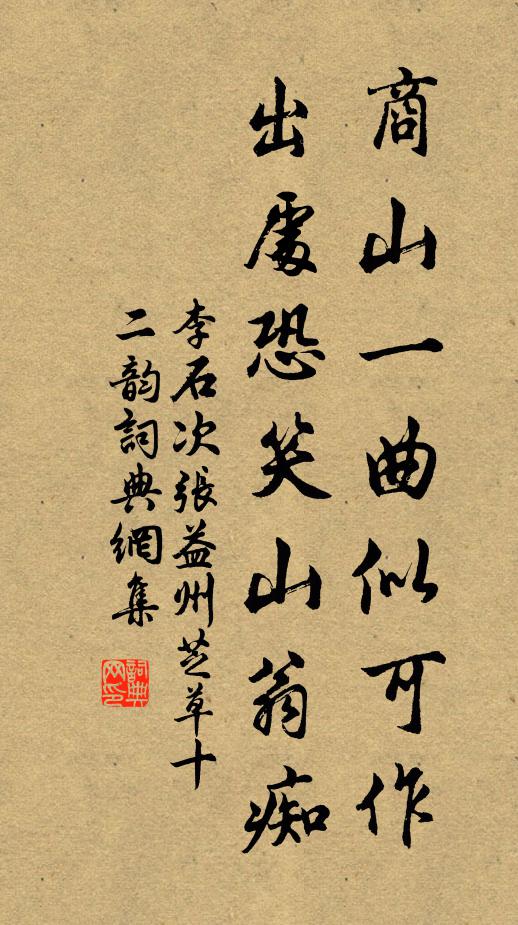 商山一曲似可作
出處恐笑山翁痴
李石次張益州芝草十
二韵詞典網集
詞典
网印